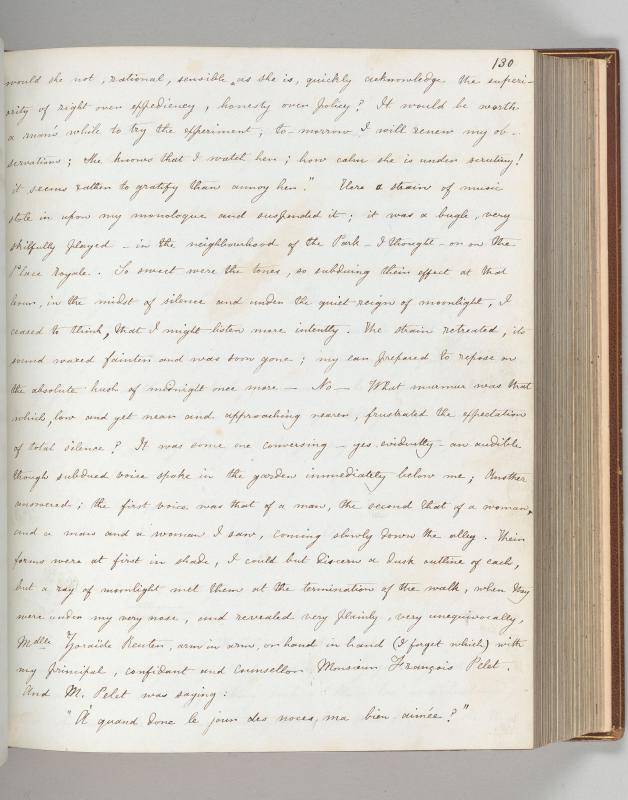 130
would she not, rational, sensible as she is, quickly acknowledge the superi-
ority of right over expediency, honesty over policy? It would be worth
a man's while to try the experiment; to-morrow I will renew my ob-
servations; she knows that I watch her; how calm she is under scrutiny!
it seems rather to gratify than annoy her." Here a strain of music
stole in upon my monologue and suspended it; it was a bugle, very
skilfully played - in the neighbourhood of the Park - I thought - or on the
Place royale. So sweet were the tones, so subduing their effect at that
hour, in the midst of silence and under the quiet reign of moonlight, I
ceased to think, that I might listen more intently. The strain retreated, its
sound waxed fainter and was soon gone; my ear prepared to repose on
the absolute hush of midnight once more — No — What murmur was that
which, low and yet near and approaching nearer, frustrated the expectation
of total silence? It was some one conversing - yes evidently - an audible
though subdued voice spoke in the garden immediately below me; Another
answered; the first voice was that of a man, the second that of a woman,
and a man and a woman I saw, coming slowly down the alley. Their
forms were at first in shade, I could but discern a dusk outline of each,
but a ray of moonlight met them at the termination of the walk, when they
were under my very nose, and revealed very plainly, very unequivocally,
Mdlle Zoraïde Reuter, arm in arm, or hand in hand (I forget which) with
my principal, confidant and counsellor Monsieur François Pelet.
And M. Pelet was saying:
"À quand donc le jour des noces, ma bien aimée?"